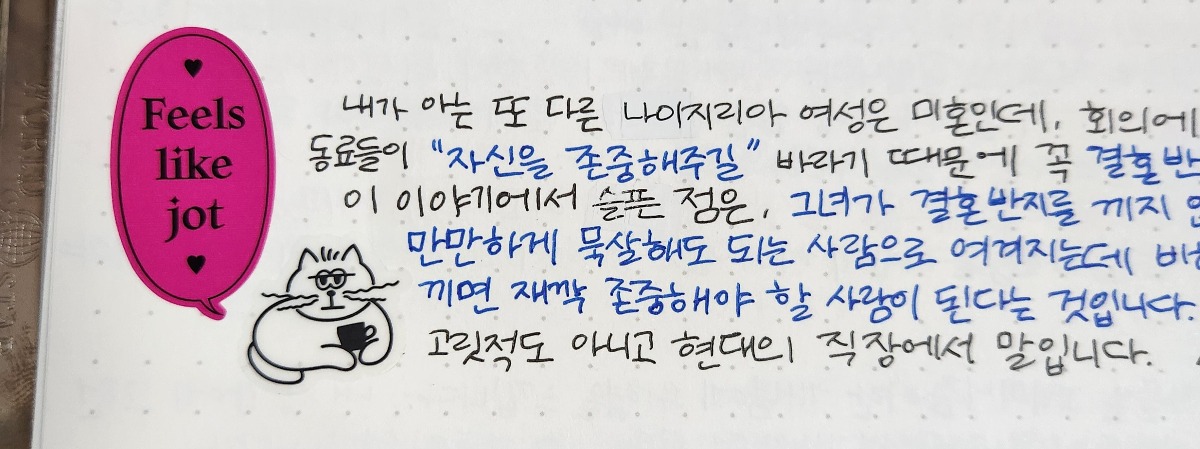 Feels
like
jot
내가 아는 또 다른 나이지리아 여성은 미혼인데, 회의에
동료들이 "자신을 존중해주길" 바라기 때문에 꼭 결혼반
이 이야기에서 슬픈 점은, 그녀가 결혼반지를 끼지
만만하게 묵살해도 되는 사람으로 여겨지는데
끼면 재깍 존중해야 할 사람이 된다는 것입니다.
고릿적도 아니고 현대의 직장에서 말입니다.